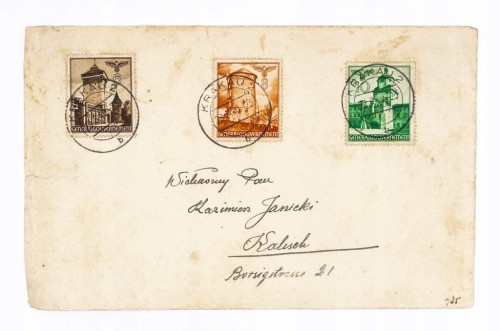 KRAKAU 2
b
GENERALGOUVERNEMENT
KRAKAU 2
b
GENERALGOUVERNEMENT
KRAKAU 2
GENERALGOUVERNEMENT
Wielmożny Pan
Kazimierz Janicki
Kalisch
Borsigstrasse 21